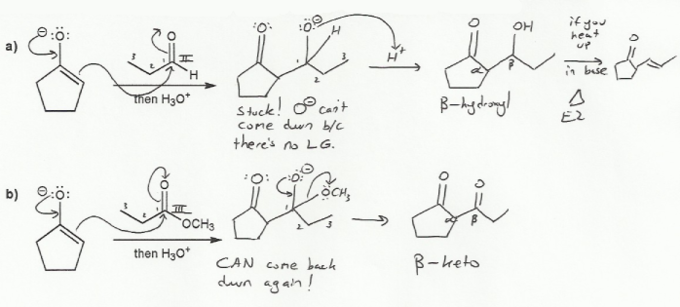 a)
⊖:Ö:
3 2 1 O II H
then H3O+
:O: :Ö:⊖ H 1 2 3
Stuck! O⊖ can't
come down b/c
there's no L.G.
H+
O OH
α β
β-hydroxyl
if you
heat
up
in base
Δ
E2
O
b)
⊖:Ö:
3 2 1 O III OCH3
then H3O+
:O: :Ö:⊖ ÖCH3 1 2 3
CAN come back
down again!
O O
α β
β-keto